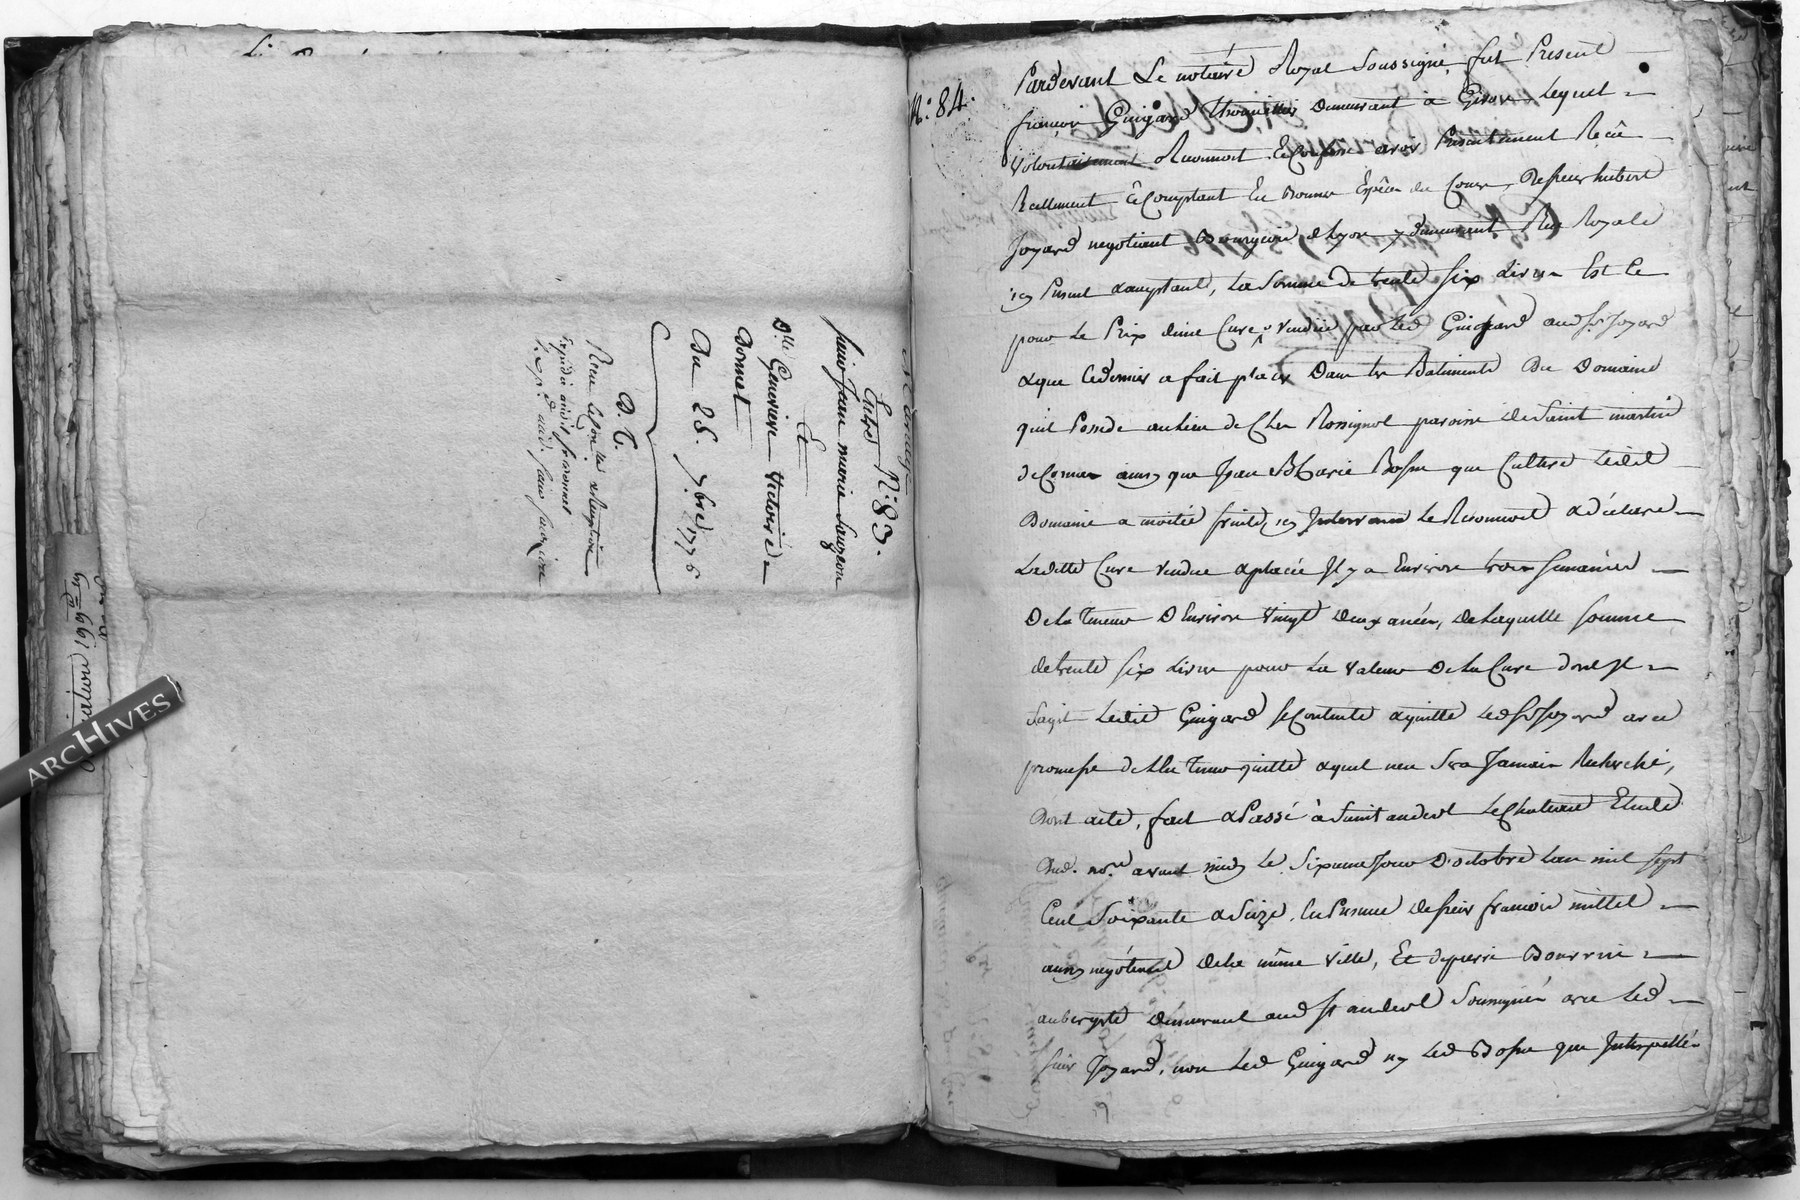 Mariage
N.° 83.
Entre
Sieur Jean marie Sauzeon
Et
D.lle Genevieve Victoire
Bonnet
Du 28. 7bre 1776
D. C.
ARCHIVES
N.° 84.
Pardevant Le notaire Royal soussigné, fut Present
françois Guigard demeurant à Givors Lequel
volontairement Reconnoit & Confesse avoir Presentement Recû
Reellement & Comptant En Bonnes Espèces de Cours, De sieur hubert
Joyard negotiant Bourgeois de Lyon y demeurant Rue Royale
icy Present & acceptant, La Somme de trente six Livres Et Ce
pour Le Prix d'une Cuve vendüe par Led Guigard aud Sr Joyard
& que Ce dernier a fait placer Dans les Batiments Du Domaine
qu'il Possede au lieu de Chez Rossignol paroisse de Saint martin
de Cornas ainsy que Jean Marie Bosse que Cultive Ledit
Domaine a moitié fruits, icy Intervenu Le Reconnoit & déclare
Laditte Cuve vendue & placée Il y a Environ trois semaines
De La Teneur D'Environ vingt Deux anées, De Laquelle somme
de trente six Livres pour La valeur De La Cuve dont Il
s'agit Ledit Guigard se Contente & quitte Led Sr Joyard avec
promesse de L'en Tenir quitte & quil n'en sera Jamais Recherché,
Dont acte, fait & Passé à Saint andeol Le Chateau Etude
Dud. no.re avant midy Le sixieme Jour D'octobre L'an mil sept
Cent Soixante & Seize, En Presence de sieur françois mittet
aussy negotiant de La même Ville, Et de pierre Bourrin
aubergiste demeurant aud St andeol Soussignés avec Led
sieur Joyard, non Led Guigard ny Led Bosse que Interpellés